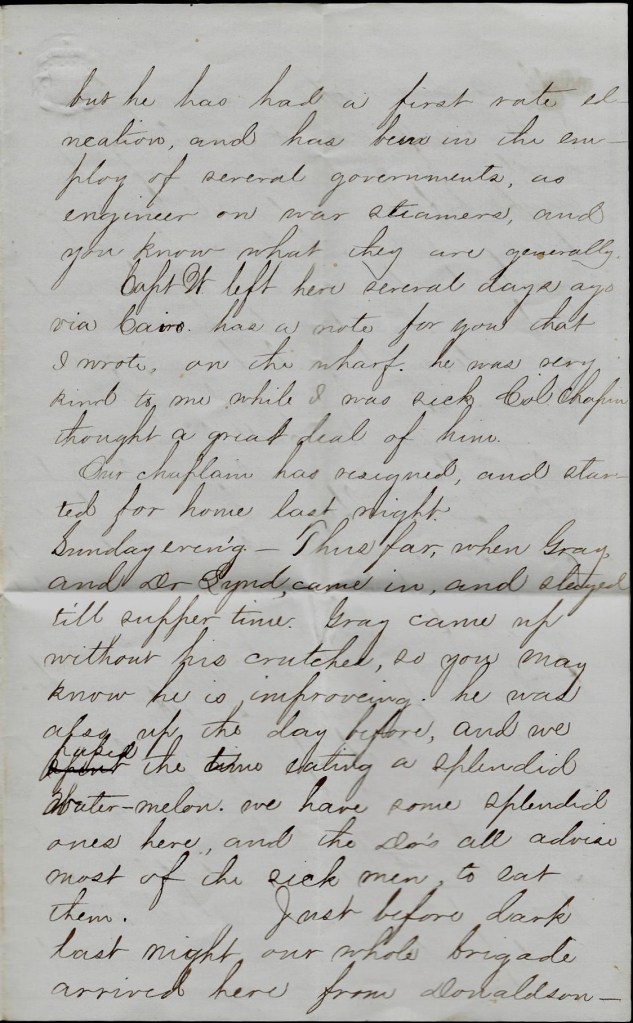 but he has had a first rate ed-
ucation, and has been in the em-
ploy of several governments, as
engineer on war steamers, and
you know what they are generally.
Capt W left here several days ago
via Cairo. has a note for you that
I wrote, on the wharf. he was very
kind to me while I was sick. Col Chapin
thought a great deal of him.
Our chaplain has resigned, and star-
ted for home last night.
Sunday even'g. - Thus far, when Gray
and Dr Lynd, came in, and stayed
till supper time. Gray came up
without his crutches, so you may
know he is improveing. he was
also up the day before, and we
passed
spent the time eating a splendid
Water-melon. we have some splendid
ones here, and the Do's all advise
most of the sick men, to eat
them. Just before dark
last night our whole brigade
arrived here from Donaldson-